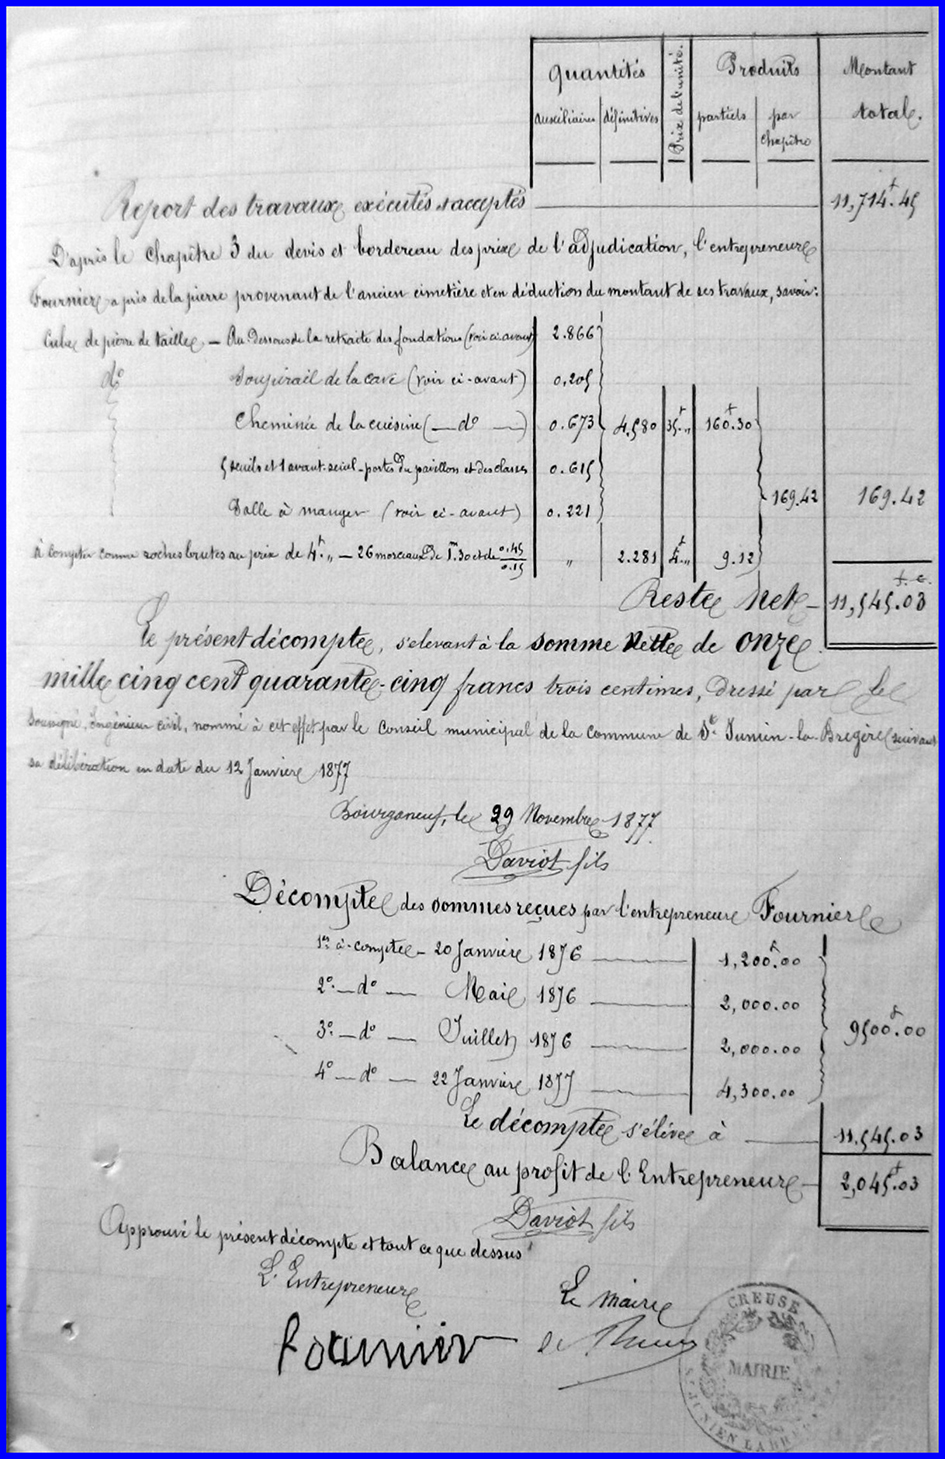 Quantités
Prix de l'unité.
Produits
Montant total.
auxiliaires
définitives
partiels
par chapitre
Report des travaux exécutés & acceptés 11,714f.45
D'après le Chapitre 3 du devis et bordereau des prix de l'adjudication, l'entrepreneur
Fournier a pris de la pierre provenant de l'ancien cimetière et en déduction du montant de ses travaux, savoir:
Cube de pierre de taille — Au Dessous de la retraite des fondations (voir ci-avant) 2.866
do Soupirail de la cave (voir ci-avant) 0,205
Cheminée de la cuisine (— do —) 0.673 4.580 35f.,, 160f.30
5 seuils et 1 avant-seuil - portes du pavillon et des classes 0.615
169.42 169.42
Salle à manger (voir ci-avant) 0.221
à compter comme roches brutes au prix de 4f.,, — 26 morceaux de 1m.30 et de 0.45/0.15 ,, 2.281 4f.,, 9.12
Reste Net — 11,545f.03c
Le présent décompte, s'élevant à la somme Nette de onze
mille cinq cent quarante-cinq francs trois centimes, Dressé par le
Soussigné, Ingénieur Civil, nommé à cet effet par le Conseil municipal de la Commune de St Junien-la-Bregère (suivant
sa délibération en date du 12 Janvier 1877
Bourganeuf, le 29 Novembre 1877.
Daviot fils
Décompte des sommes reçues par l'entrepreneur Fournier
1er à-compte — 20 Janvier 1876 — 1,200f.00
2o — do — Mai 1876 — 2,000.00
9500f.00
3o — do — Juillet 1876 — 2,000.00
4o — do — 22 Janvier 1877 — 4,300.00
Le décompte s'élève à — 11,545.03
Balance au profit de l'Entrepreneur — 2,045f.03
Daviot fils
Approuvé le présent décompte et tout ce que dessus
L'Entrepreneur
Le Maire
fournier
CREUSE
MAIRIE
ST JUNIEN LABREGERE